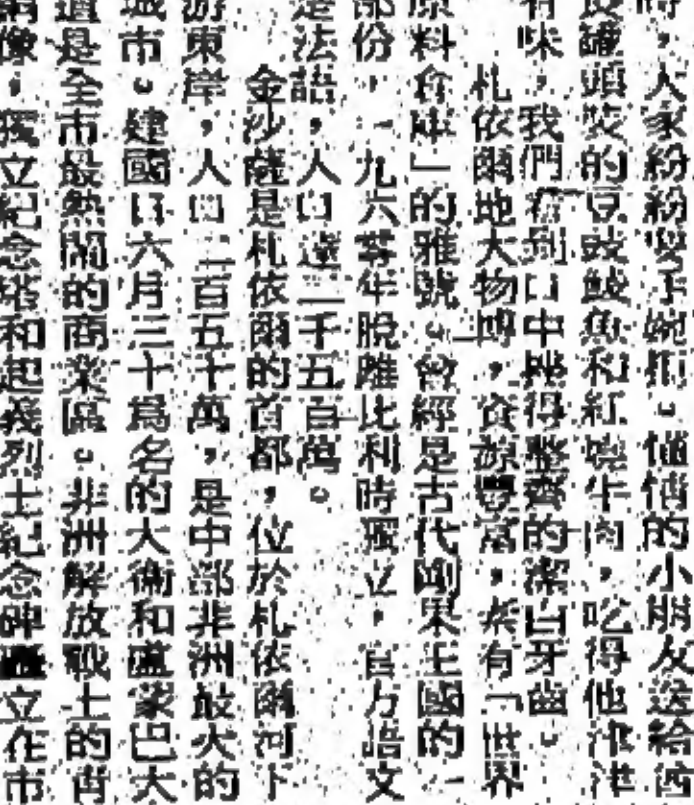 時，人家紛紛雙手婉拒。的小朋友送給
及罐頭裝的豆豉鯪魚和紅燒牛肉，吃得他津津
有味，我們看到口中排得整齊的潔白牙齒。
札依爾地大物博，資源豐富，素有「世界
原料倉庫」的雅號。曾經是古代剛果王國的一
部份，一九六零年脫離比利時獨立，官方語文
是法語，人口達二千五百萬。
金沙薩是札依爾的首都，位於札依爾河下
游東岸，人口二百五十萬，是中部非洲最大的
城市。建國日六月三十爲名的大街和盧蒙巴大
道是全市最熱鬧的商業區。非洲解放戰士的青
銅像，獨立紀念塔和起義烈士紀念碑矗立在市